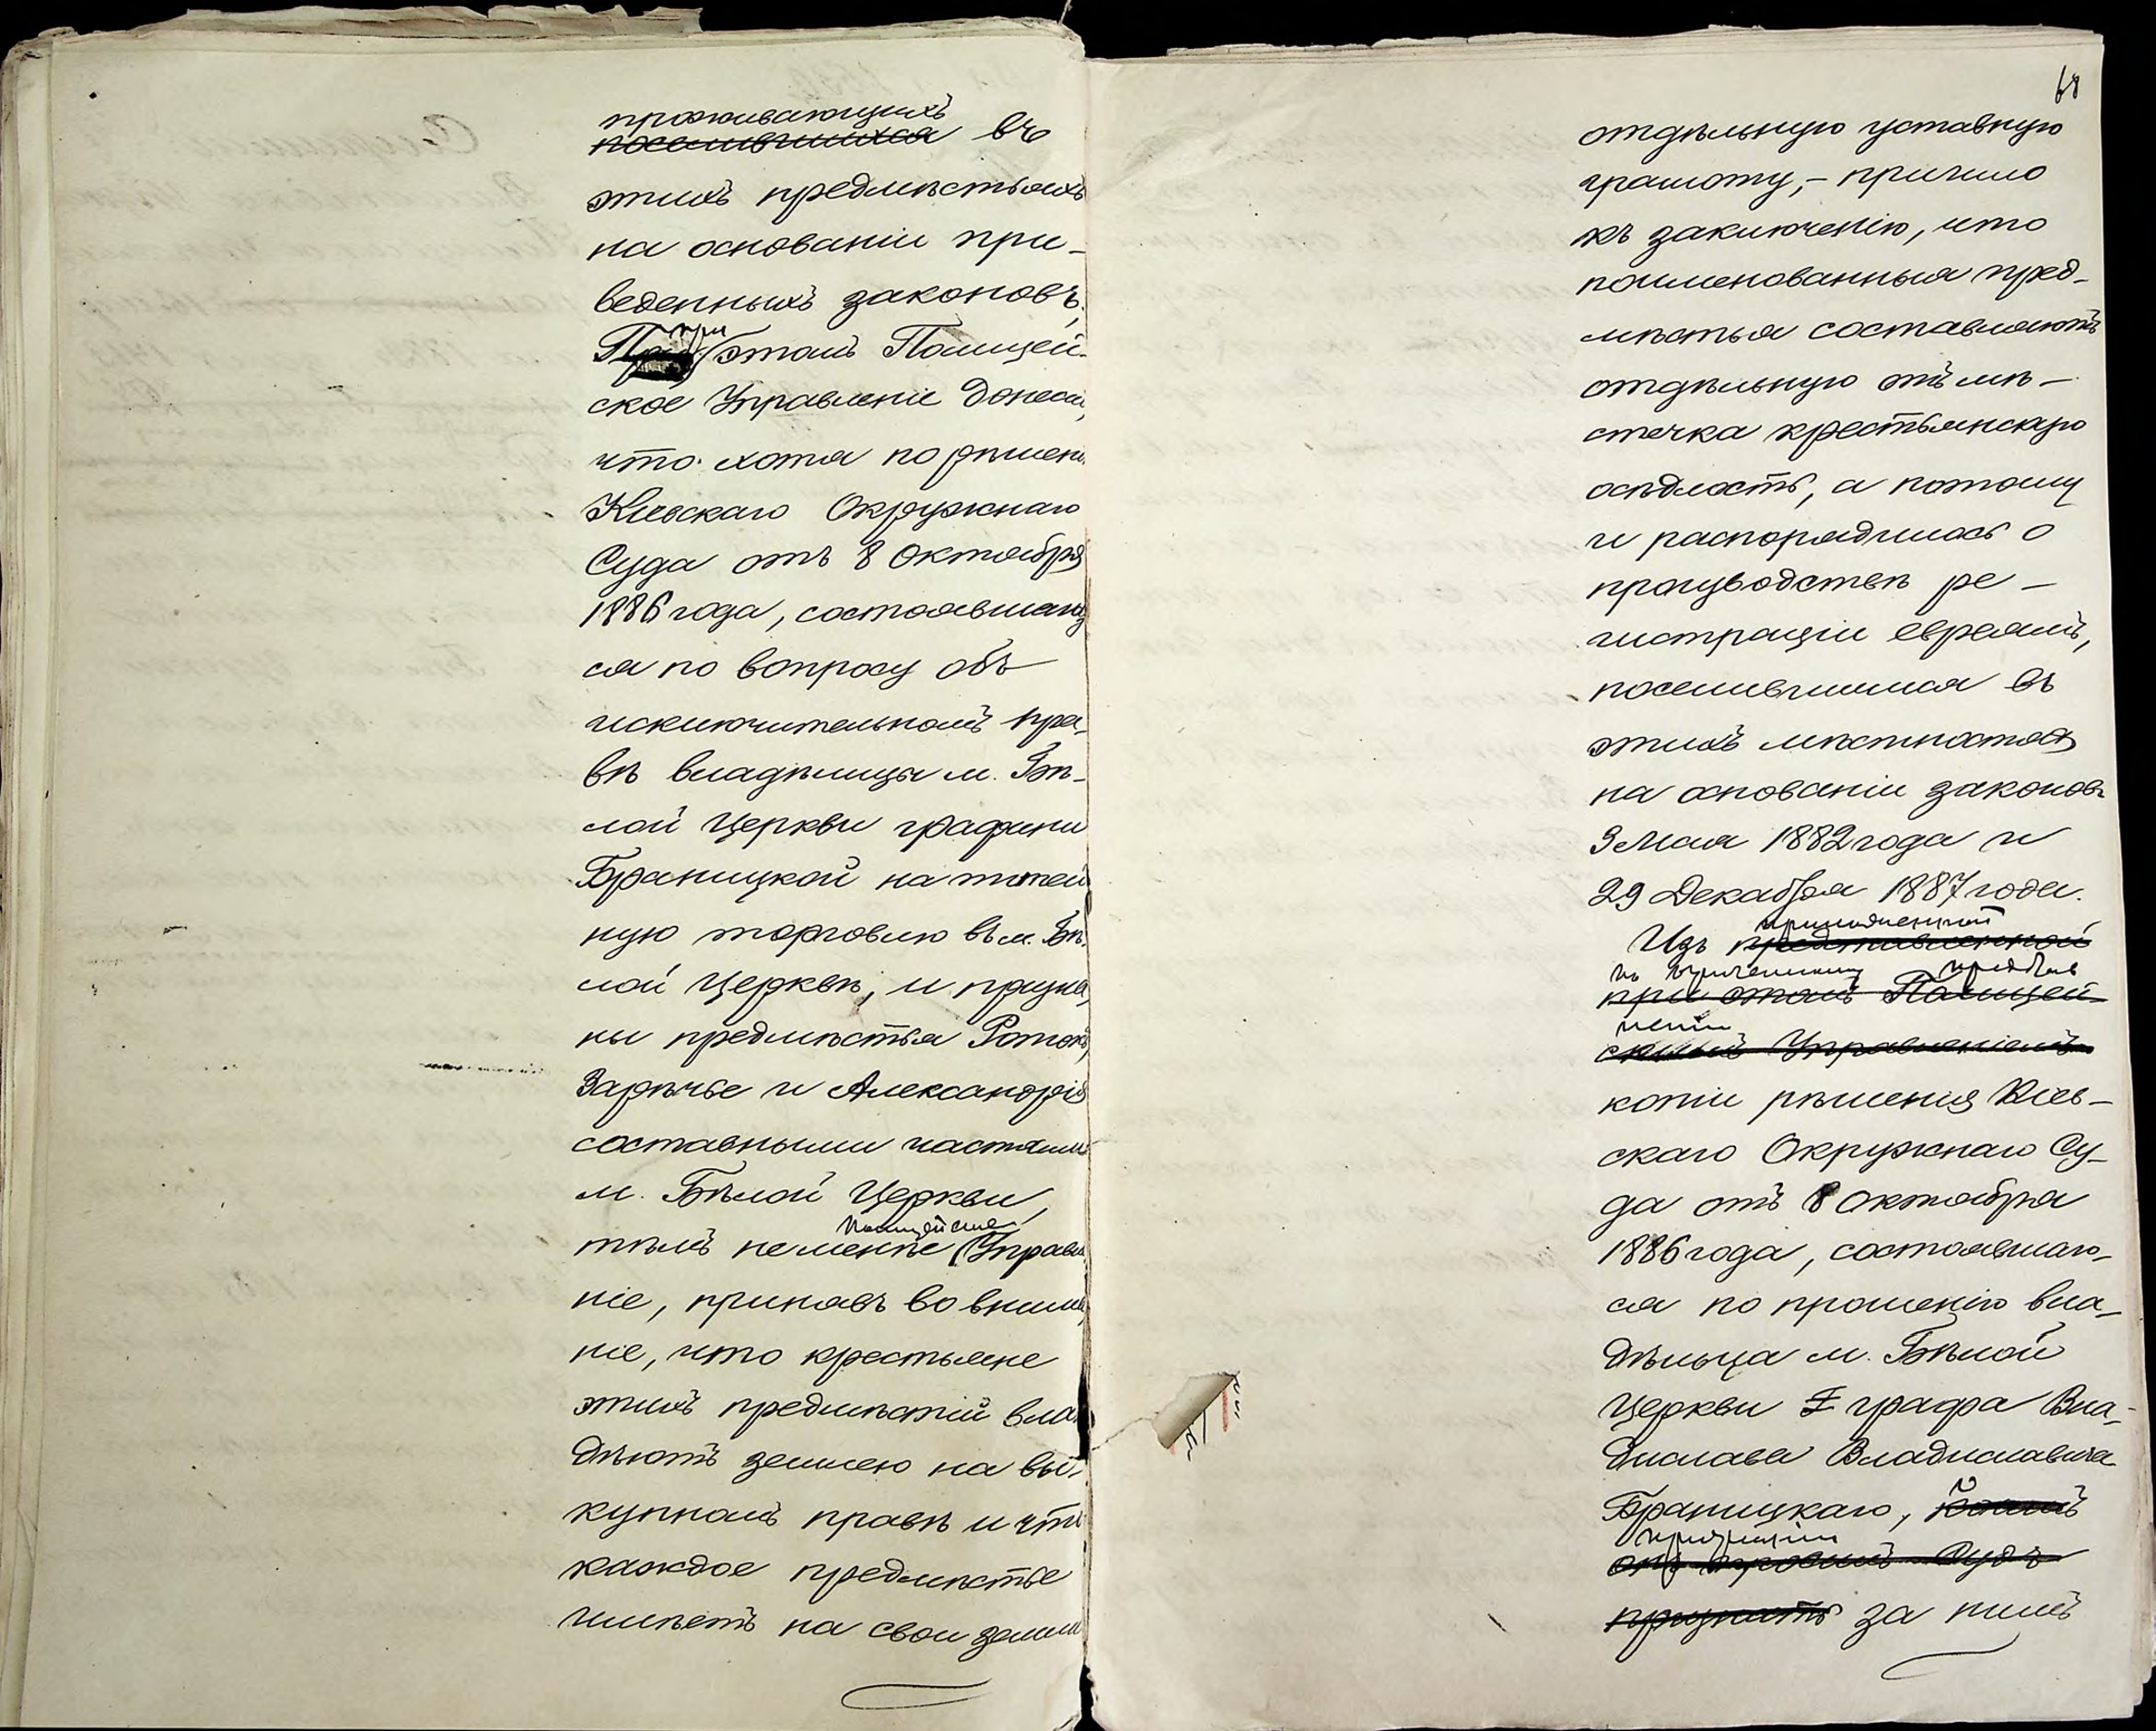 проживающихъ
поселившихся въ
этихъ предмѣстьяхъ
на основаніи при-
веденныхъ законовъ.
при
этомъ Полицей-
ское Управленіе донесло,
что хотя по рѣшенію
Кіевскаго Окружнаго
Суда отъ 8 Октября
1886 года, состоявшему
ся по вопросу объ
исключительномъ пра-
вѣ владѣлицы м. Бѣ-
лой Церкви графини
Браницкой на питей
ную торговлю въ м. Бѣ-
лой Церкви, и призна
ны предмѣстья Ротокъ,
Зарѣчье и Александрія
составными частями
м. Бѣлой Церкви,
Полицейское
тѣмъ не менѣе Управле
ніе, принявъ во внима
ніе, что крестьяне
этихъ предмѣстій вла
дѣютъ землею на вы-
купномъ правѣ и что
каждое предмѣстье
имѣетъ на свои земли
68
отдѣльную уставную
грамоту,- пришло
къ заключенію, что
поименованныя пред-
мѣстья составляютъ
отдѣльную отъ мѣ-
стечка крестьянскую
осѣдлость, а потому
и распорядилось о
производствѣ ре-
гистраціи евреямъ,
поселившимся въ
этихъ мѣстностяхъ
на основаніи законовъ
3 Мая 1882 года и
29 Декабря 1887 года.
приложенной
Изъ представленной
къ упомянутому представ
при этомъ Полицей-
ленію
скимъ Управленіемъ
копіи рѣшенія Кіев-
скаго Окружнаго Су-
да отъ 8 Октября
1886 года, состоявшаго-
ся по прошенію вла-
дѣльца м. Бѣлой
Церкви графа Вла-
дислава Владиславича
Браницкаго, о
признаніи
Судъ
признать за нимъ